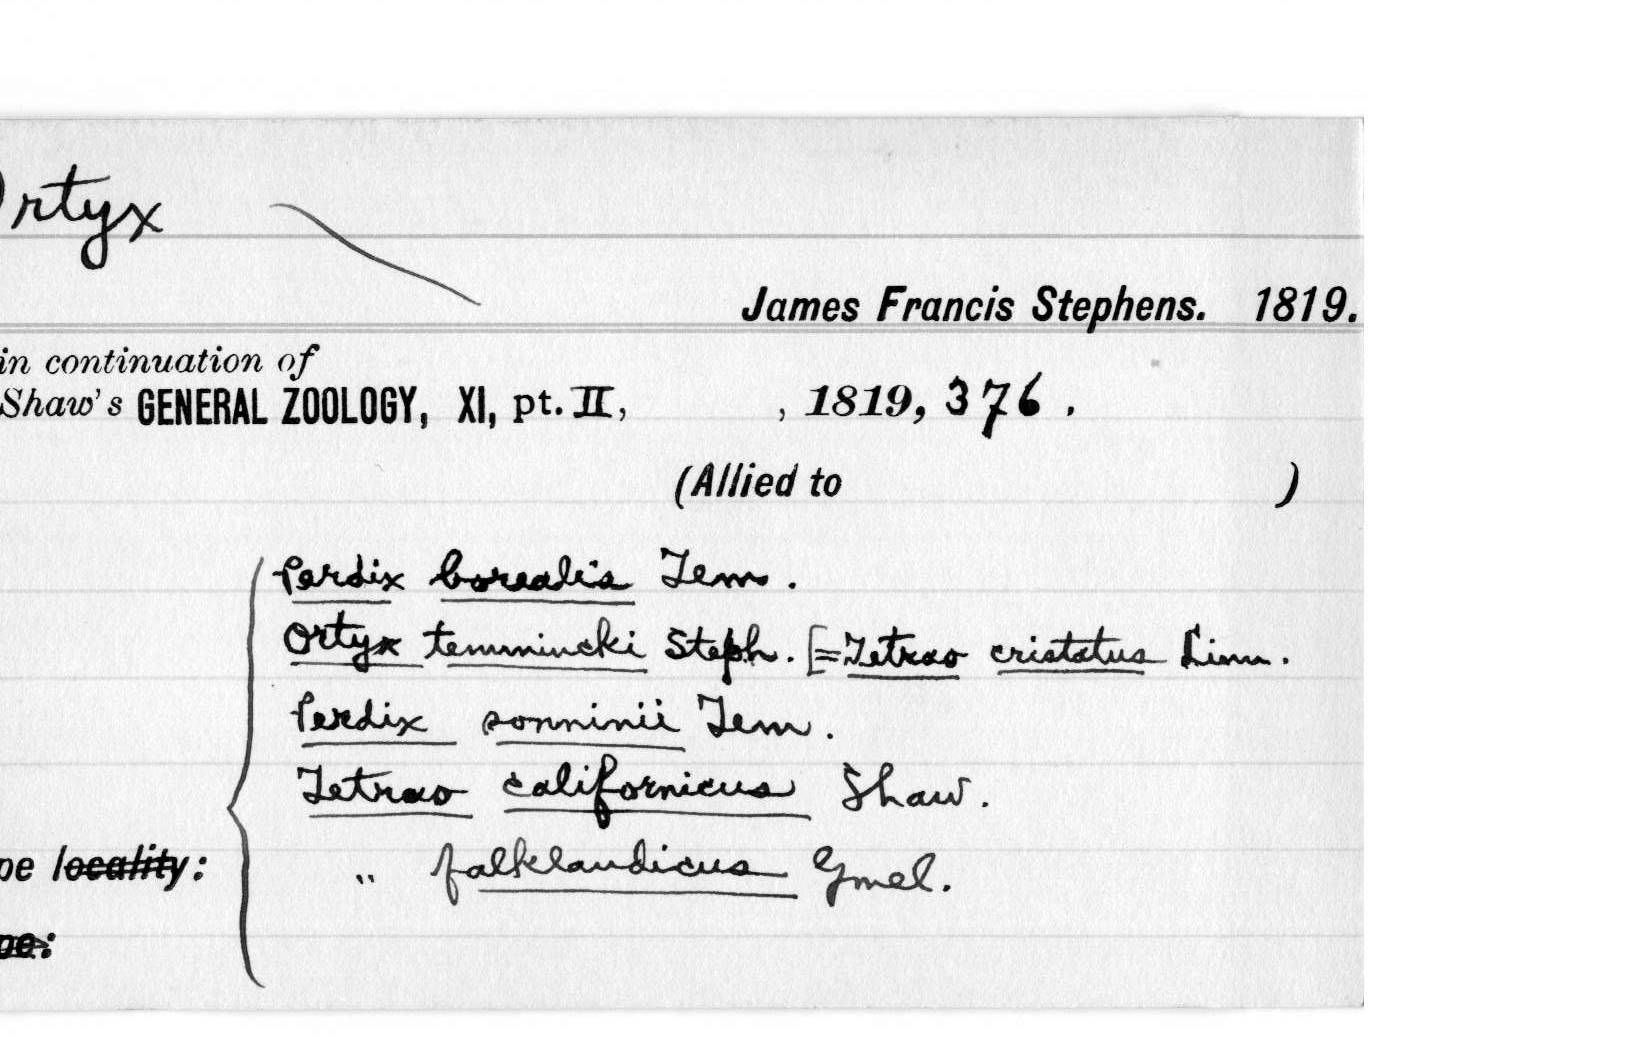 Ortyx
James Francis Stephens. 1819.
in continuation of
Shaw's GENERAL ZOOLOGY, XI, pt. II, , 1819, 376.
(Allied to )
Perdix borealis Tem.
Ortyx temmincki Steph. [=Tetrao cristatus Linn.
Perdix sonninii Tem.
Tetrao californicus Shaw.
pe locality:
" falklandicus Gmel.
pe: